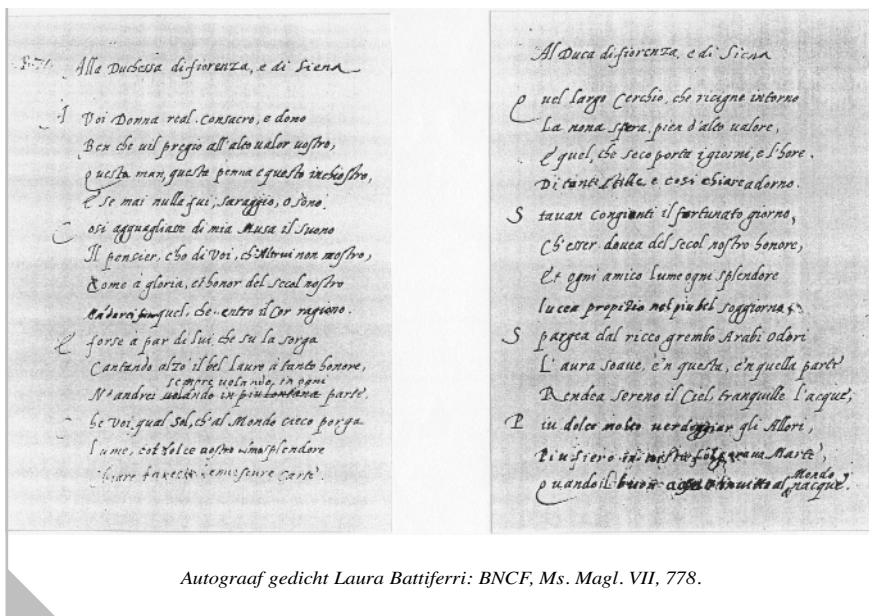 Alla Duchessa di fiorenza, e di Siena
A Voi Donna real consacro, e dono
Ben che uil pregio all'alto ualor uostro,
Questa man, questa penna e questo inchiostro,
E se mai nulla fui, saraggio, o sono.
Cosi agguagliasse di mia Musa il suono
Il pensier, c'ho di Voi, ch'Altrui non mostro,
Come à gloria, et honor del secol nostro
quel, che entro il Cor ragiono.
E forse a par di lui, che su la sorga
Cantando alzò il bel Lauro à tanto honore,
sempre uolando, in ogni
N'andrei uolando in piu lontana parte,
he Voi, qual Sol, ch'al Mondo cieco porga
lume, col uostro splendore
Chiare oscure Carte.
Al Duca di fiorenza, e di Siena
Quel largo Cerchio, che ricigne intorno
La nona spera, pien d'alto ualore,
E quel, che seco porta i giorni, e l'hore.
Di tante stelle, e cosi chiare adorno.
Stauan congionti il fortunato giorno,
Ch'esser douea del secol nostro honore,
Et ogni amico lume ogni splendore
lucea propitio nel piu bel soggiorno.
Spargea dal ricco grembo Arabi Odori
L'aura soaue, e'n questa, e'n quella parte
Rendea sereno il Ciel, tranquille l'acque,
Piu dolce molto uerdeggiar gli Allori,
Piu fiero in uista Marte,
Mondo
Quando il buon inuitto al nacque.
Autograaf gedicht Laura Battiferri: BNCF, Ms. Magl. VII, 778.